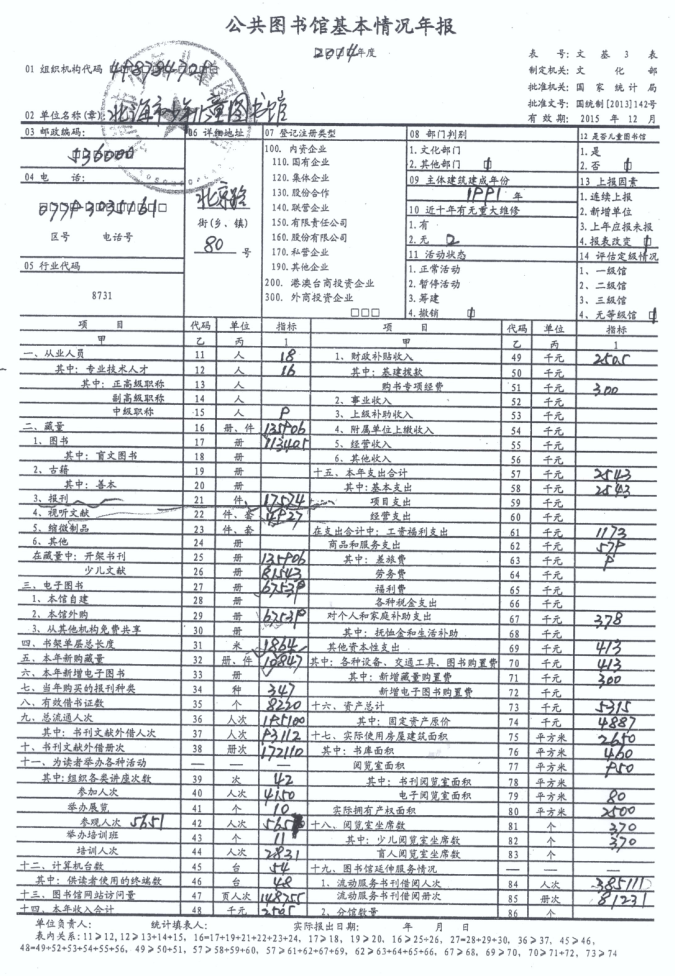 公共图书馆基本情况年报
2014年度
表 号：文 基 3 表
01 组织机构代码
制定机关：文 化 部
批准机关：国 家 统 计 局
批准文号：国统制[2013]142号
02 单位名称(章)：北海市少年儿童图书馆
有 效 期：2015 年 12 月
03 邮政编码：
536000
04 电 话：
区号 电话号
05 行业代码
8731
06 详细地址
北京路
街(乡、镇)
80 号
07 登记注册类型
100. 内资企业
110. 国有企业
120. 集体企业
130. 股份合作
140. 联营企业
150. 有限责任公司
160. 股份有限公司
170. 私营企业
190. 其他企业
200. 港澳台商投资企业
300. 外商投资企业
□□□
08 部门判别
1. 文化部门
2. 其他部门
09 主体建筑建成年份
1991 年
10 近十年有无重大维修
1. 有
2. 无 2
11 活动状态
1. 正常活动
2. 暂停活动
3. 筹建
4. 撤销
12 是否儿童图书馆
1. 是
2. 否
13 上报因素
1. 连续上报
2. 新增单位
3. 上年应报未报
4. 报表改变
14 评估定级情况
1、一级馆
2、二级馆
3、三级馆
4、无等级馆
项 目 代码 单位 指标 项 目 代码 单位 指标
甲 乙 丙 1 甲 乙 丙 1
一、从业人员 11 人 18 1、财政补贴收入 49 千元 2505
其中：专业技术人才 12 人 16 其中：基建拨款 50 千元
其中：正高级职称 13 人 购书专项经费 51 千元 300
副高级职称 14 人 2、事业收入 52 千元
中级职称 15 人 9 3、上级补助收入 53 千元
二、藏量 16 册、件 135906 4、附属单位上缴收入 54 千元
1、图书 17 册 113405 5、经营收入 55 千元
其中：盲文图书 18 册 6、其他收入 56 千元
2、古籍 19 册 十五、本年支出合计 57 千元 2543
其中：善本 20 册 其中：基本支出 58 千元 2543
3、报刊 21 件 17574 项目支出 59 千元
4、视听文献 22 件、套 4927 经营支出 60 千元
5、缩微制品 23 件、套 在支出合计中：工资福利支出 61 千元 1173
6、其他 24 册 商品和服务支出 62 千元 579
在藏量中：开架书刊 25 册 135906 其中：差旅费 63 千元 9
少儿文献 26 册 81543 劳务费 64 千元
三、电子图书 27 册 67539 福利费 65 千元
1、本馆自建 28 册 各种税金支出 66 千元
2、本馆外购 29 册 67539 对个人和家庭补助支出 67 千元 378
3、从其他机构免费共享 30 册 其中：抚恤金和生活补助 68 千元
四、书架单层总长度 31 米 1864 其他资本性支出 69 千元 413
五、本年新购藏量 32 册、件 10847 其中：各种设备、交通工具、图书购置费 70 千元 413
六、本年新增电子图书 33 册 其中：新增藏量购置费 71 千元 300
七、当年购买的报刊种类 34 种 347 新增电子图书购置费 72 千元
八、有效借书证数 35 个 8220 十六、资产总计 73 千元 5315
九、总流通人次 36 人次 195100 其中：固定资产原价 74 千元 4887
其中：书刊文献外借人次 37 人次 93112 十七、实际使用房屋建筑面积 75 平方米 2650
十、书刊文献外借册次 38 册次 172110 其中：书库面积 76 平方米 460
十一、为读者举办各种活动 — — — 阅览室面积 77 平方米 950
其中：组织各类讲座次数 39 次 42 其中：书刊阅览室面积 78 平方米
参加人次 40 人次 4150 电子阅览室面积 79 平方米 80
举办展览 41 个 10 实际拥有产权面积 80 平方米 2500
参观人次 5651 42 人次 十八、阅览室坐席数 81 个 370
举办培训班 43 个 11 其中：少儿阅览室坐席数 82 个 370
培训人次 44 人次 2831 盲人阅览室坐席数 83 个
十二、计算机台数 45 台 54 十九、图书馆延伸服务情况 — — —
其中：供读者使用的终端数 46 台 48 1、流动服务书刊借阅人次 84 人次 385111
十三、图书馆网站访问量 47 页人次 148755 流动服务书刊借阅册次 85 册次 81231
十四、本年收入合计 48 千元 2505 2、分馆数量 86 个
单位负责人： 统计填表人： 实际报出日期： 年 月 日
表内关系：11≥12，12≥13+14+15，16=17+19+21+22+23+24，17≥18，19≥20，16≥25+26，27=28+29+30，36≥37，45≥46，
48=49+52+53+54+55+56，49≥50+51，57=58+59+60，57≥61+62+67+69，62≥63+64+65+66，67≥68，69≥70，70≥71+72，73≥74